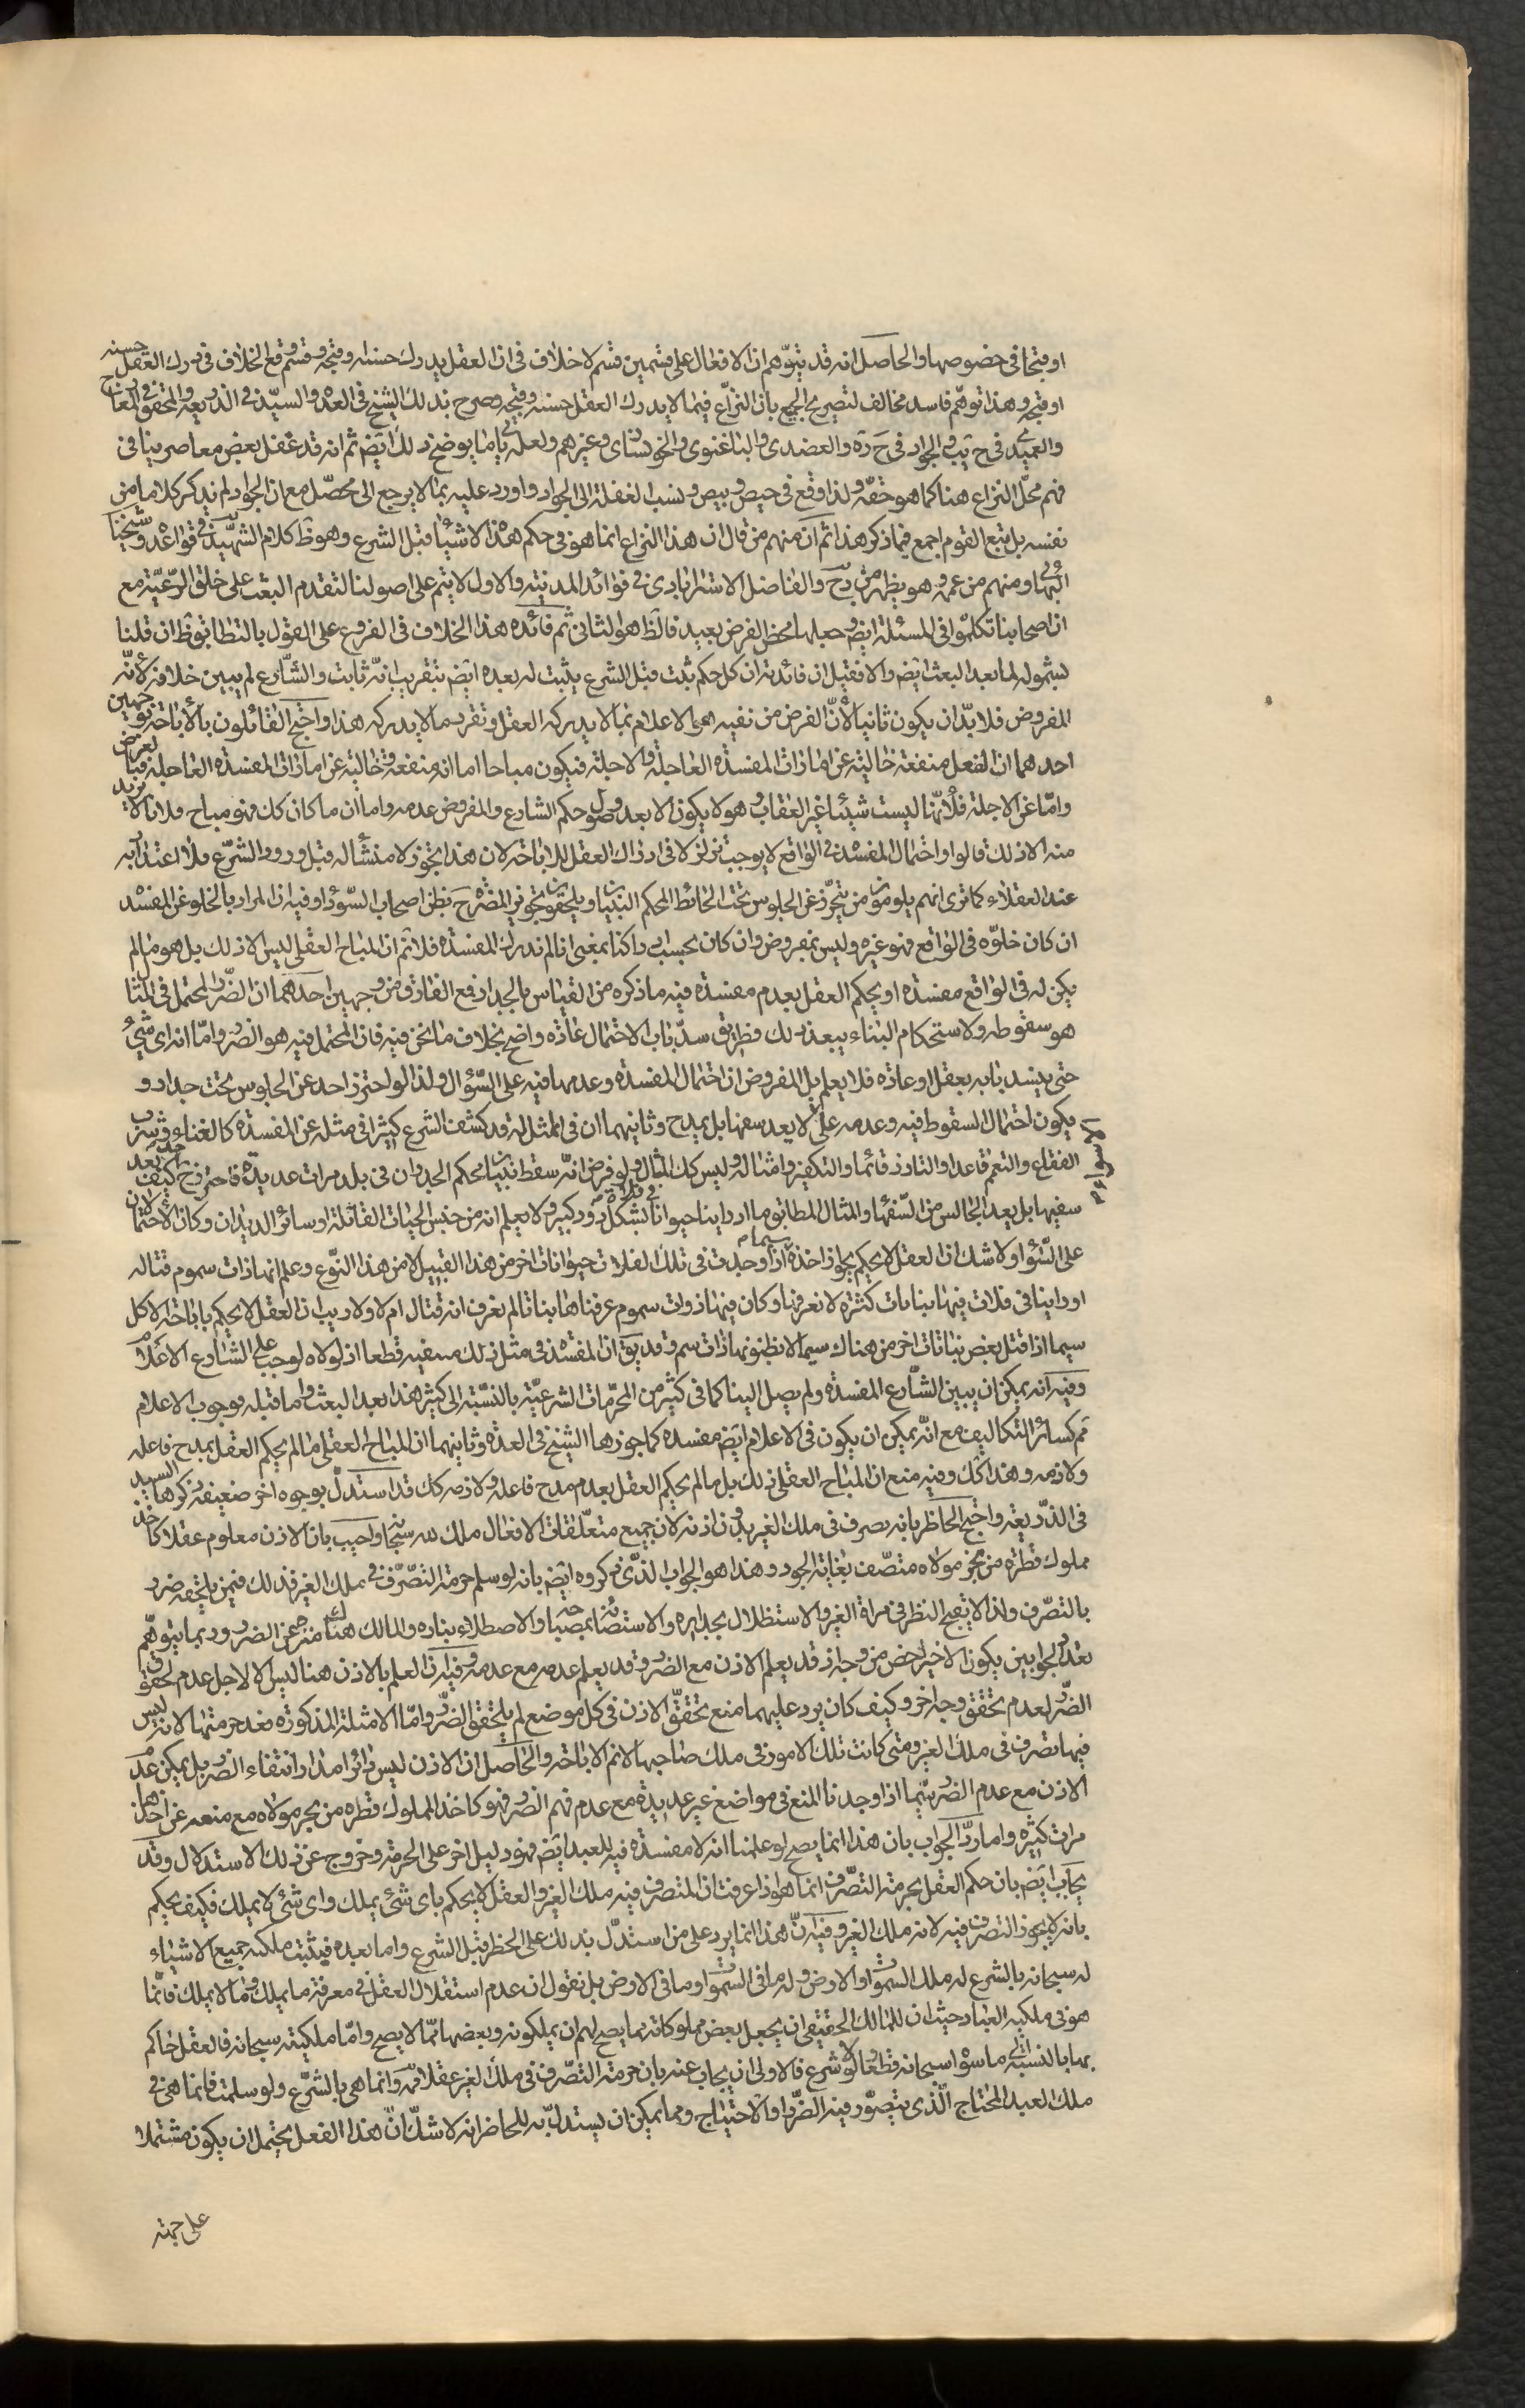 او قبحا في خصوصها والحاصل انه قد يتوهم ان الافعال على قسمين قسم لا خلاف في ان العقل يدرك حسنه وقبحه وقسم وقع الخلاف في درك العقل حسنه
او قبحه وهذا توهم فاسد مخالف لتصريح الجميع بان النزاع فيما لا يدرك العقل حسنه وقبحه وصرح بذلك الشيخ في العدة والسيد في الذريعة والمحقق في المعارج
والعميدي في ح يب والجواد في ح دة والعضدي والباغنوي والخونساري وغيرهم ولعله يأتي ما يوضح ذلك ايضا ثم انه قد غفل بعض معاصرينا في
فهم محل النزاع هنا كما هو حقه ولذا وقع في حيص وبيص ونسب الغفلة الى الجواد واورد عليه بما لا يرجع الى محصل مع ان الجواد لم يذكر كلاما من
نفسه بل يتبع القوم اجمع فيما ذكر هذا ثم ان منهم من قال ان هذا النزاع انما هو في حكم هذه الاشياء قبل الشرع وهو ظ كلام الشهيد في قواعده وشيخنا
البهائي ومنهم من عممه وهو يظهر من دح والفاضل الاسترابادي في فوائد المدنية والاول لا يتم على اصولنا لتقدم البعث على خلق الرعية مع
ان اصحابنا تكلموا في المسئلة ايض وجعلها محض الفرض بعيد فالظ هو الثاني ثم فائدة هذا الخلاف في الفروع على القول بالتطابق ظ ان قلنا
بشموله لما بعد البعث ايض والا فقيل ان فائدته ان كل حكم ثبت قبل الشرع يثبت له بعده ايض بتقريب انه ثابت والشارع لم يبين خلافه لانه
المفروض فلا بد ان يكون ثانيا لان الغرض من نفيه هو الاعلام بما لا يدركه العقل وتقرر ما لا يدركه هذا واحتج القائلون بالاباحة بوجهين
احدهما ان الفعل منفعة خالية عن امارات المفسدة العاجلة والاجلة فيكون مباحا اما انه منفعة وخالية عن امارات المفسدة العاجلة فبالفرض
واما عن الاجلة فلانها ليست شيئا غير العقاب وهو لا يكون الا بعد وصول حكم الشارع والمفروض عدمه واما ان ما كان كك فهو مباح فلانا لا نريد
منه الا ذلك قالوا واحتمال المفسدة في الواقع لا يوجب تزلزلا في ادراك العقل للاباحة لان هذا تجوز لا منشأ له قبل ورود الشرع فلا اعتداد به
عند العقلاء كما ترى انهم يلومون من يتحرز عن الجلوس تحت الحائط المحكم البنيان ويلحقون تجويز المضرة ح بظن اصحاب السوداء وفيه ان المراد بالخلو عن المفسدة
ان كان خلوه في الواقع فهو غيره وليس بمفروض وان كان بحسب ادراكنا بمعنى انا لم ندرك المفسدة فلا ثم ان المباح العقلي ليس الا ذلك بل هو ما لم
يكن له في الواقع مفسدة او يحكم العقل بعدم مفسدة فيه ما ذكره من القياس بالجدار فمع الفارق من وجهين احدهما ان الضرر المحتمل في المثال
هو سقوطه ولاستحكام البناء يبعد ذلك فطريق سد باب الاحتمال عادة واضح بخلاف ما نحن فيه فان المحتمل فيه هو الضرر واما انه اي شيء
حتى ينسد بابه بعقل او عادة فلا يعلم بل المفروض ان احتمال المفسدة وعدمها فيه على السؤال ولذا لو احترز احد عن الجلوس تحت جدار و
يكون احتمال السقوط فيه وعدمه على السواء لا يعد سفيها بل يمدح وثانيهما ان في امثاله قد كشف الشرع كثيرا في مثله عن المفسدة كالغناء وشرب
الفقاع والتعمم قاعدا والتارز قائما والتكفير وامثاله وليس كك المثال ولو فرض انه سقط بنيان محكم الجدران في بلد مرات عديدة فاحترز ح كيف يعد
سفيها بل يعد الجالس من السفهاء والمثال المطابق ما اذا راينا حيوانا في فلاة بشكل دود كبير ولا يعلم انه من جنس الحيات القاتلة او سائر الديدان وكان الاحتمالان
على السواء ولا شك ان العقل لا يحكم بجواز اخذه سيما اذا وجدت في تلك الفلات حيوانات اخر من هذا القبيل لا من هذا النوع وعلم انها ذات سموم قتاله
او راينا في فلات فيها نباتات كثيرة لا نعرفها وكان فيها ذوات سموم عرفناها نباتا لم نعرف انه قتال ام لا ولا ريب ان العقل لا يحكم باباحة الاكل
سيما اذا قتل بعض نباتات اخر من هناك سيما لا نظنونها ذات سم وقد يق ان المفسدة في مثل ذلك منفية قطعا اذ لولاه لوجب على الشارع الاعلام
وفيه انه يمكن ان يبين الشارع المفسدة ولم يصل الينا كما في كثير من المحرمات الشرعية بالنسبة الى كثير هذا بعد البعث واما قبله فوجوب الاعلام
ثم كسائر التكاليف مع انه يمكن ان يكون في الاعلام ايض مفسدة كما جوزها الشيخ في العدة وثانيهما ان المباح العقلي ما لم يحكم العقل بمدح فاعله
ولا ذمه وهذا كك وفيه منع ان المباح العقلي ذلك بل ما لم يحكم العقل بعدم مدح فاعله ولا ذمه كك قد استدل بوجوه اخر ضعيفة ذكرها السيد
في الذريعة واحتج الحاظر بانه تصرف في ملك الغير بدون اذنه لان جميع متعلقات الافعال ملك لله سبحانه واجيب بان الاذن معلوم عقلا كاخذ
مملوك قطرة من بحر مولاه متصف بغاية الجود وهذا هو الجواب الذي ذكروه ايض بانه لو سلم حرمة التصرف في ملك الغير فذلك فيمن يلحقه ضرر
بالتصرف ولذا لا يقبح النظر في مراة الغير والاستظلال بجداره والاستضائة بمصباحه والاصطلاء بناره والمالك هنالك منزه عن الضرر وربما يتوهم
بعد الجوابين يكون الاخير اخص من وجه اذ قد يعلم الاذن مع الضرر وقد يعلم عدمه مع عدمه وفيه ان العلم بالاذن هنا ليس الا لاجل عدم لحوق
الضرر لعدم تحقق وجه اخر وكيف كان يرد عليهما منع تحقق الاذن في كل موضع لم يلتحق الضرر واما الامثلة المذكورة فعدم حرمتها لانه ليس
فيها تصرف في ملك الغير ومتى كانت تلك الامور في ملك صاحبها لا ثم الاباحة والحاصل ان الاذن ليس دائرا مدار انتفاء الضرر بل يمكن عدم
الاذن مع عدم الضرر سيما اذا وجدنا المنع في مواضع غير عديدة مع عدم فهم الضرر فهو كاخذ المملوك قطرة من بحر مولاه مع منعه عن اخذها
مرات كثيرة واما رد الجواب بان هذا انما يصح لو علمنا انه لا مفسدة فيه للعبد ايض فهو دليل اخر على الحرمة وخروج عن ذلك الاستدلال وقد
يجاب ايض بان حكم العقل بحرمة التصرف انما هو اذا عرفت ان المتصرف فيه ملك الغير والعقل لا يحكم باي شئ يملك واي شئ لا يملك فكيف يحكم
بانه لا يجوز التصرف فيه لانه ملك الغير وفيه ان هذا انما يرد على من استدل بذلك على الحظر قبل الشرع واما بعده فيثبت ملكية جميع الاشياء
له سبحانه بالشرع له ملك السموات والارض وله ما في السموات وما في الارض بل نقول ان عدم استقلال العقل في معرفة ما يملك وما لا يملك فانما
هو في ملكية العباد حيث ان للمالك الحقيقي ان يجعل بعض مملوكاته مما يصح لهم ان يملكونه وبعضها مما لا يصح واما ملكيته سبحانه فالعقل حاكم
بها بالنسبة الى ما سواه سبحانه قطعا ولو لا شرع فالاولى ان يجاب عنه بان حرمة التصرف في ملك الغير عقلا ثم وانما هي بالشرع ولو سلمت فانما هي في
ملك العبد المحتاج الذي يتصور فيه الضرر او الاحتياج ومما يمكن ان يستدل به للحاضر انه لا شك ان هذا الفعل يحتمل ان يكون مشتملا
على جهة